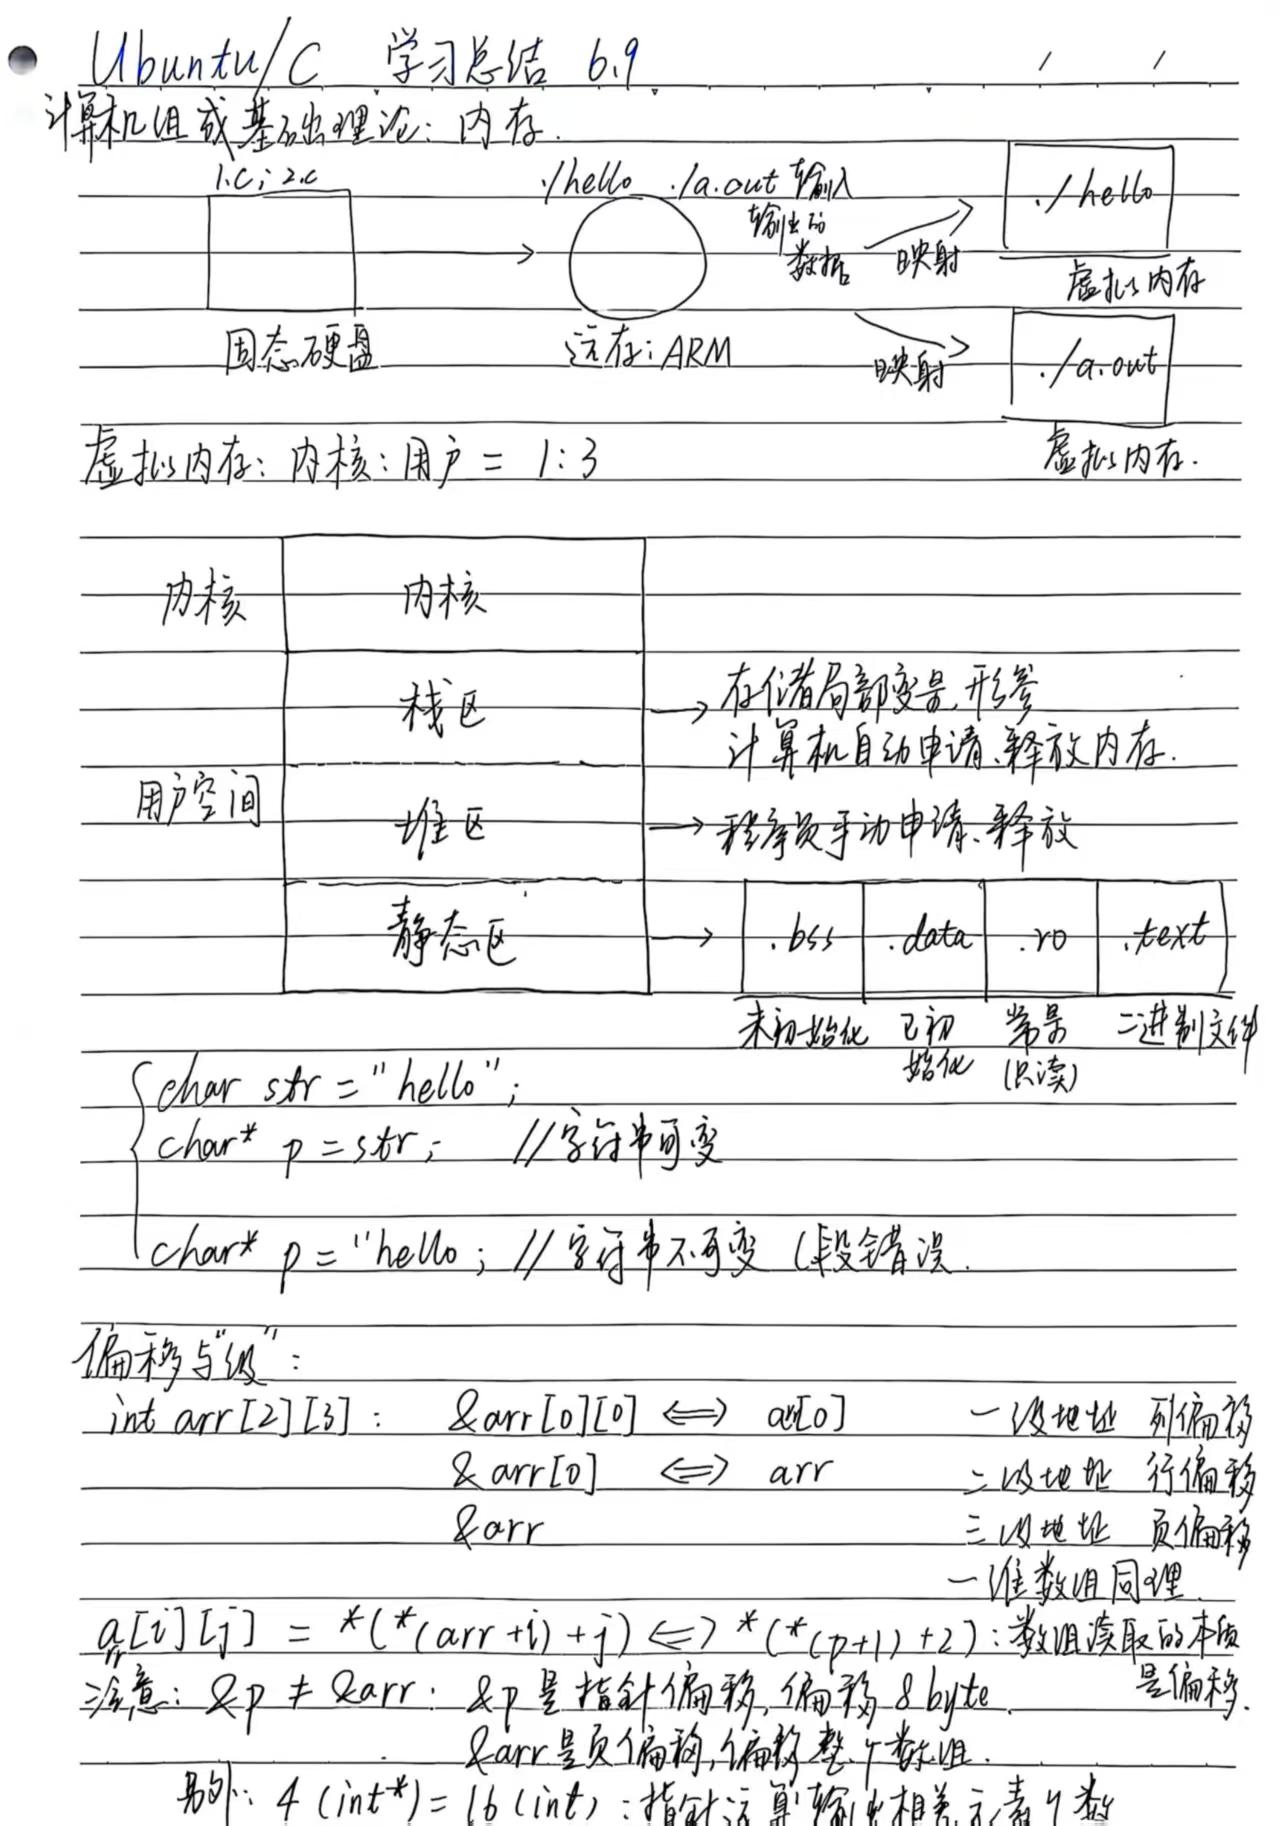 Ubuntu/C 学习总结 6.9
计算机组成基础理论: 内存.
1.c; 2.c
./hello ./a.out 输入
输出的
数据
映射
./hello
虚拟内存
固态硬盘
运存: ARM
映射
./a.out
虚拟内存.
虚拟内存: 内核: 用户 = 1:3
内核
内核
栈区
→ 存储局部变量,形参
计算机自动申请、释放内存.
用户空间
堆区
→ 程序员手动申请、释放
静态区
→ .bss .data .ro .text
未初始化 已初始化 常量(只读) 二进制文件
char str = "hello";
char* p = str; //字符串可变
char* p = "hello; //字符串不可变 (段错误.
偏移与"级":
int arr[2][3]: &arr[0][0] <=> arr[0] 一级地址 列偏移
&arr[0] <=> arr 二级地址 行偏移
&arr 三级地址 页偏移
一维数组同理.
arr[i][j] = *(*(arr+i)+j) <=> *(*(p+1)+2): 数组读取的本质
是偏移.
注意: &p ≠ &arr: &p是指针偏移,偏移8byte.
&arr是页偏移,偏移整个数组.
另外: 4(int*)=16(int): 指针运算输出相差元素个数